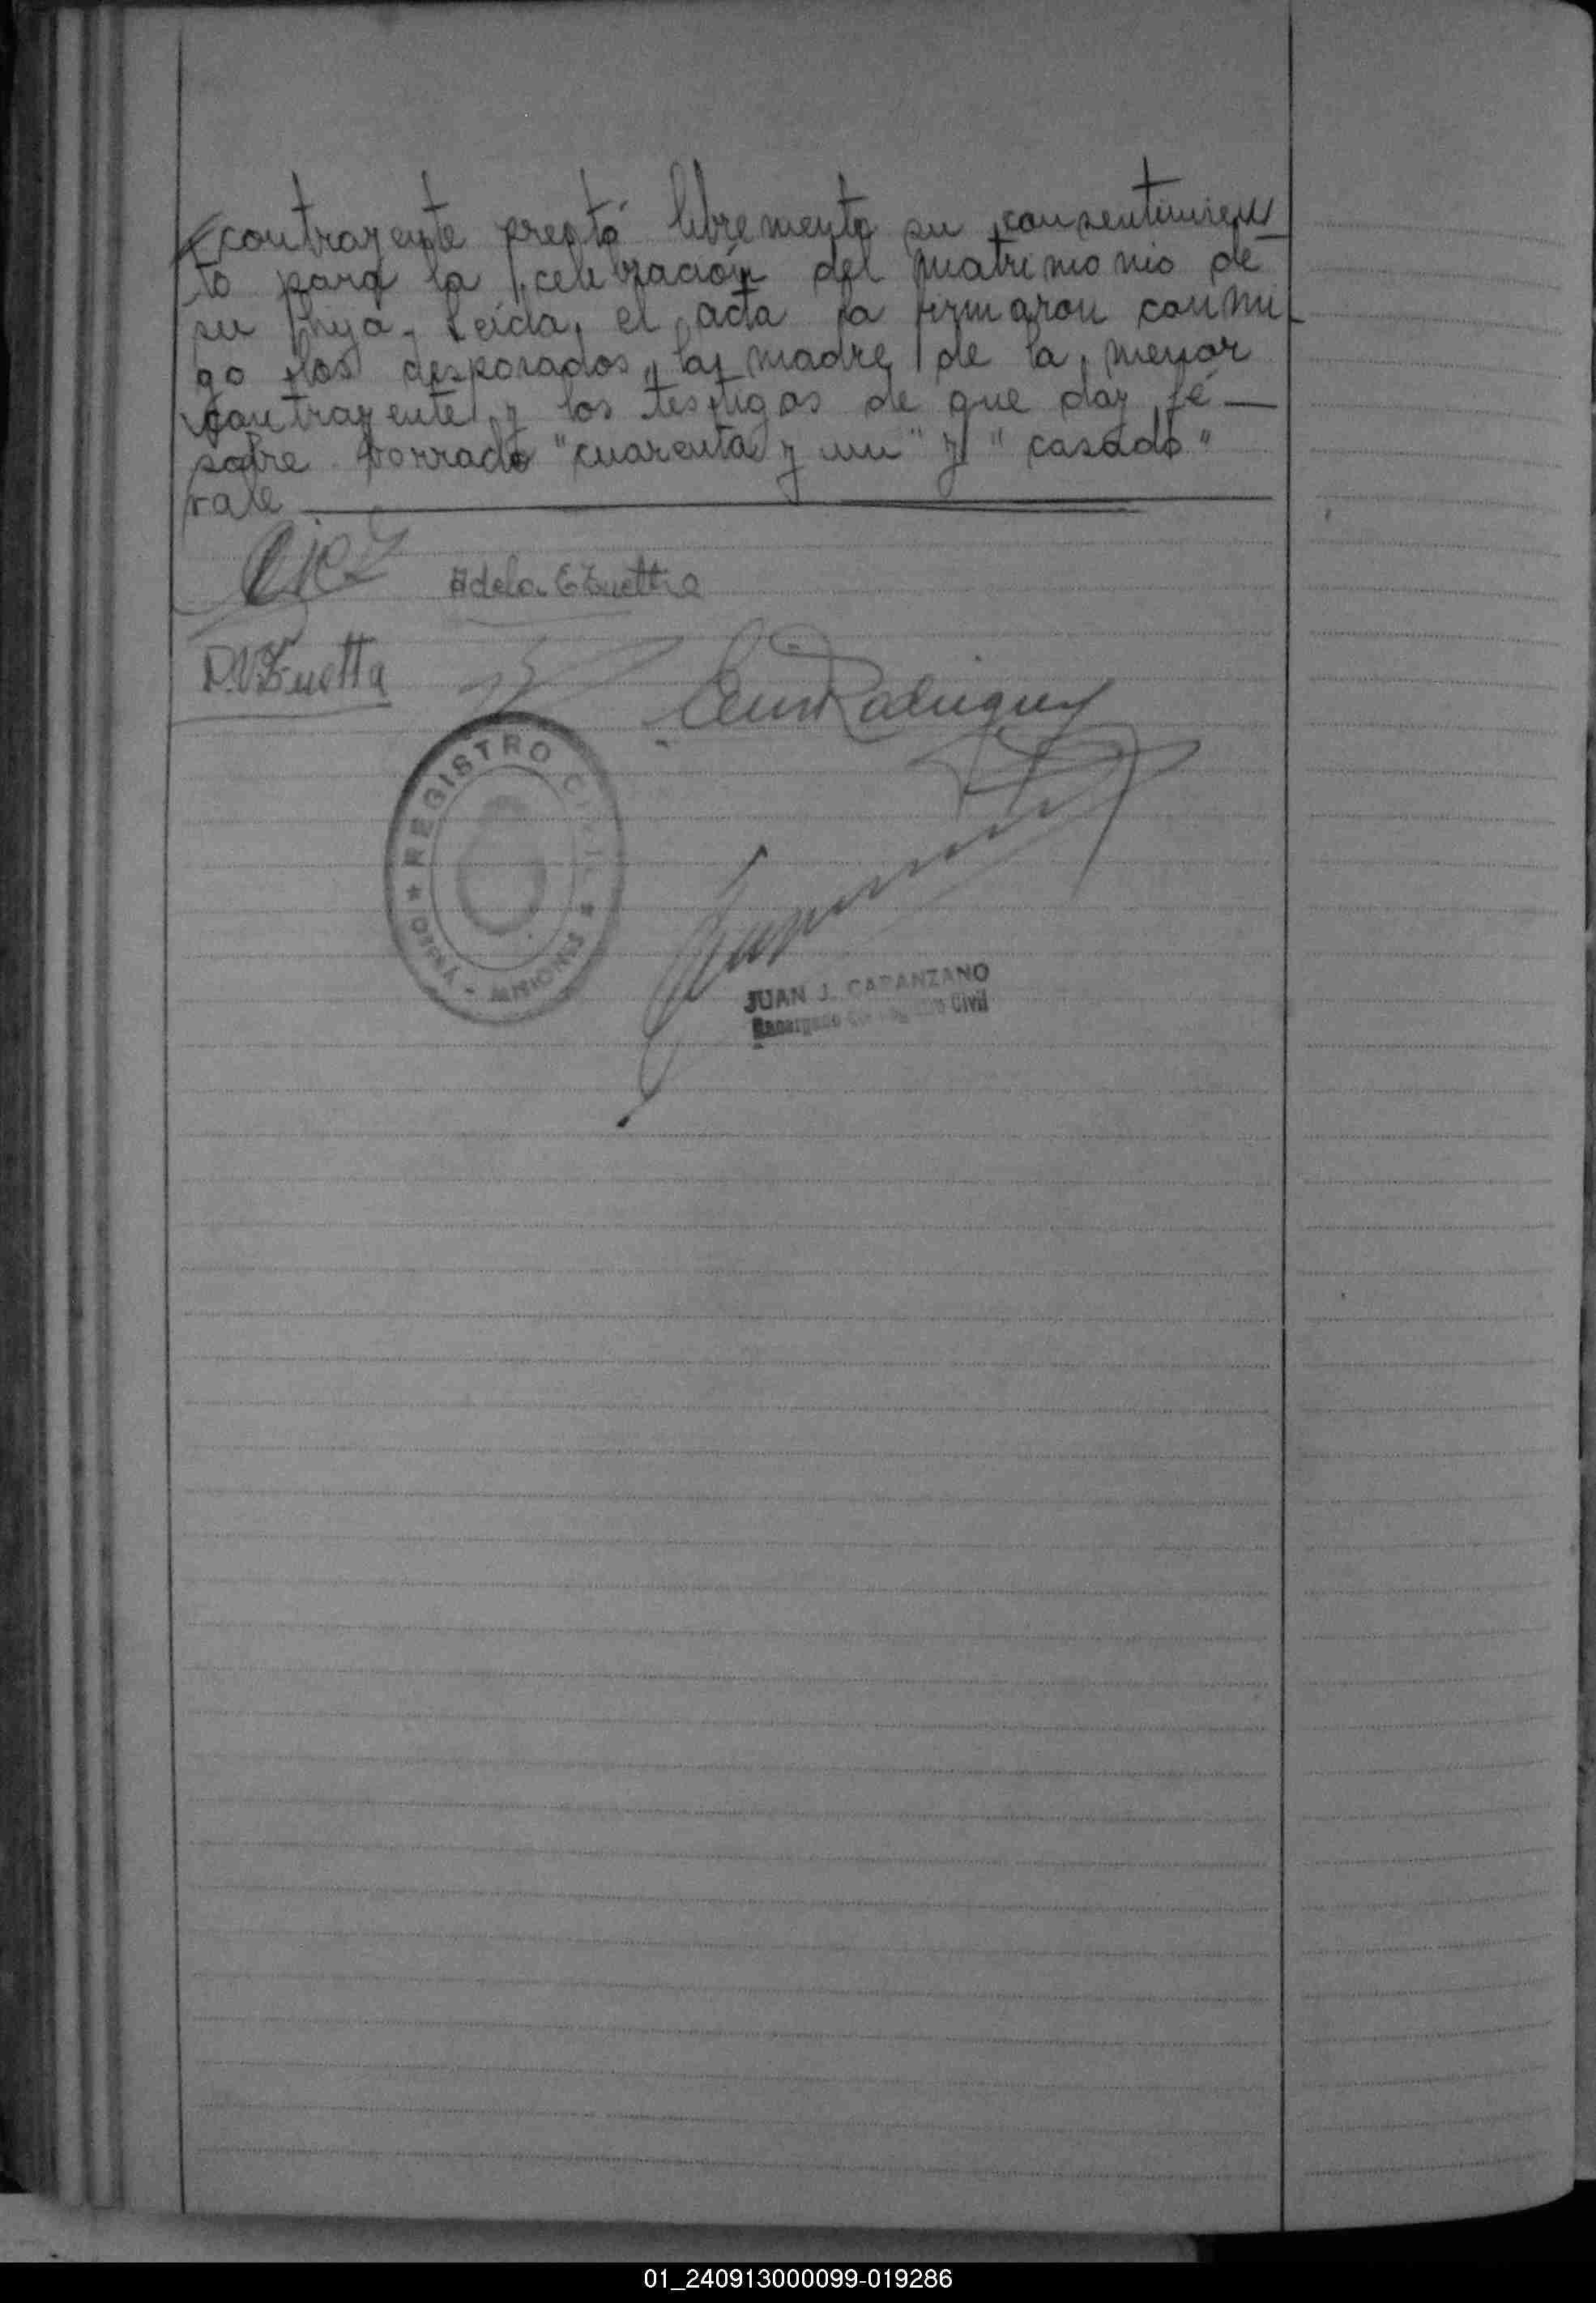 contrayente prestó libremente su consentimien
to para la celebración del matrimonio de
su hija. Leída el acta la firmaron conmi
go los desposados, la madre de la menor
contrayente y los testigos de que doy fé —
sobre borrado "cuarenta y un" y "casado"
vale
Adela E Zuetta
D.V. Zuetta
Rodriguez
REGISTRO CIVIL
MISIONES
JUAN J. CARANZANO
Encargado del Registro Civil
01_240913000099-019286